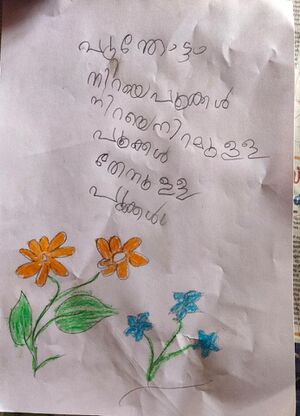 പൂന്തോട്ടം
നിറയെ പൂക്കൾ
നിറഞ്ഞ നിറമുള്ള
പൂക്കൾ
തേനുള്ള
പൂക്കൾ